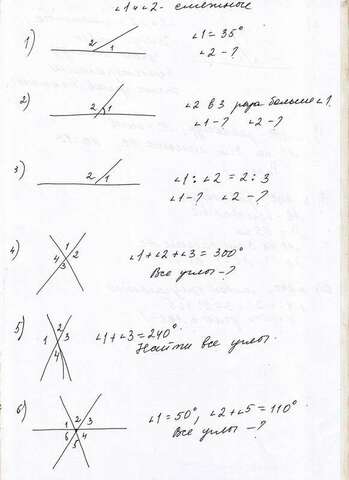 ∠1 и ∠2 - смежные
1)
2 1
∠1 = 35°
∠2 - ?
2)
2 1
∠2 в 3 раза больше ∠1.
∠1 - ? ∠2 - ?
3)
2 1
∠1 : ∠2 = 2 : 3
∠1 - ? ∠2 - ?
4)
1
4 2
3
∠1 + ∠2 + ∠3 = 300°
Все углы - ?
5)
2
1 3
4
∠1 + ∠3 = 240°.
Найти все углы.
6)
1 2 3
6 5 4
∠1 = 50°, ∠2 + ∠5 = 110°
Все углы - ?